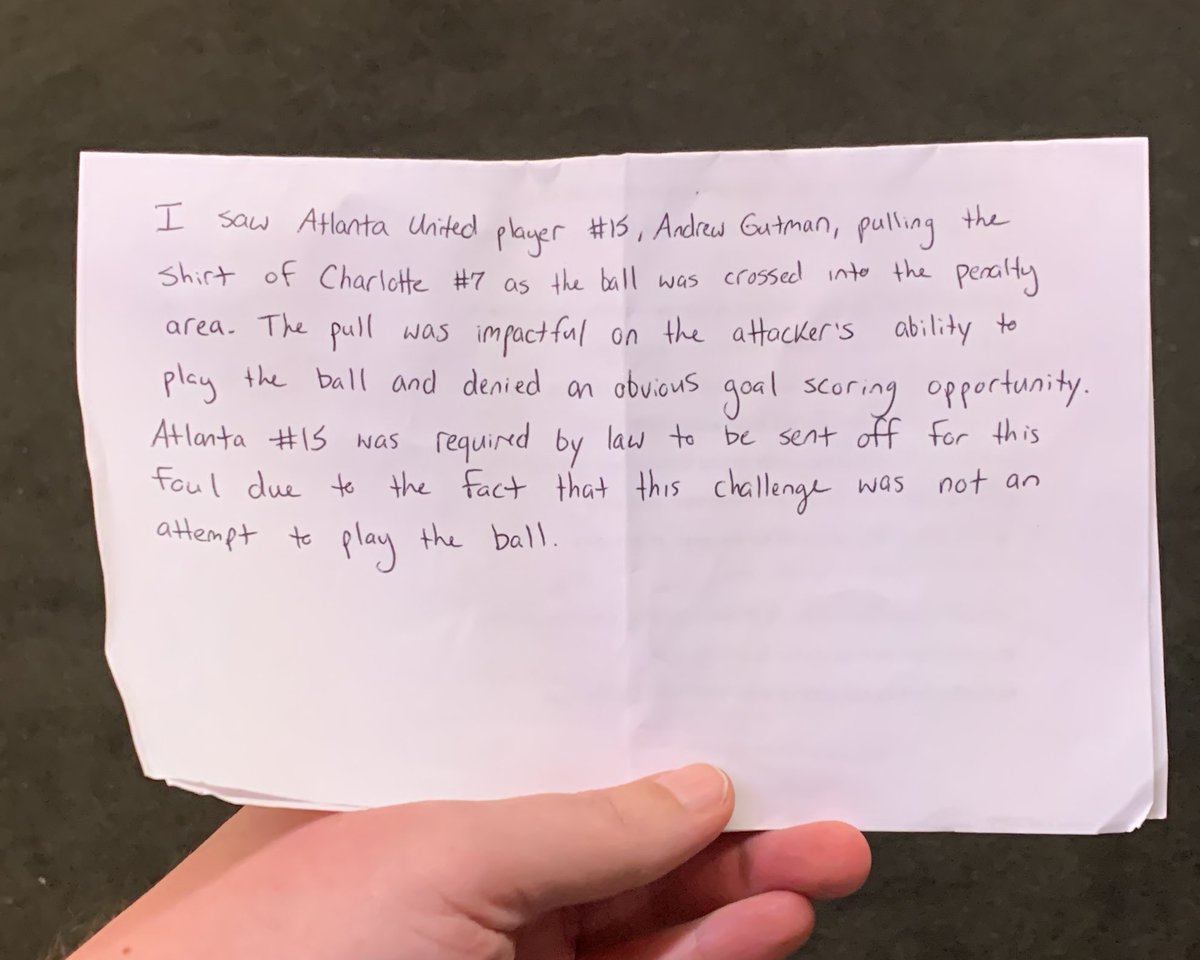 I saw Atlanta United player #15, Andrew Gutman, pulling the
shirt of Charlotte #7 as the ball was crossed into the penalty
area. The pull was impactful on the attacker's ability to
play the ball and denied an obvious goal scoring opportunity.
Atlanta #15 was required by law to be sent off for this
foul due to the fact that this challenge was not an
attempt to play the ball.